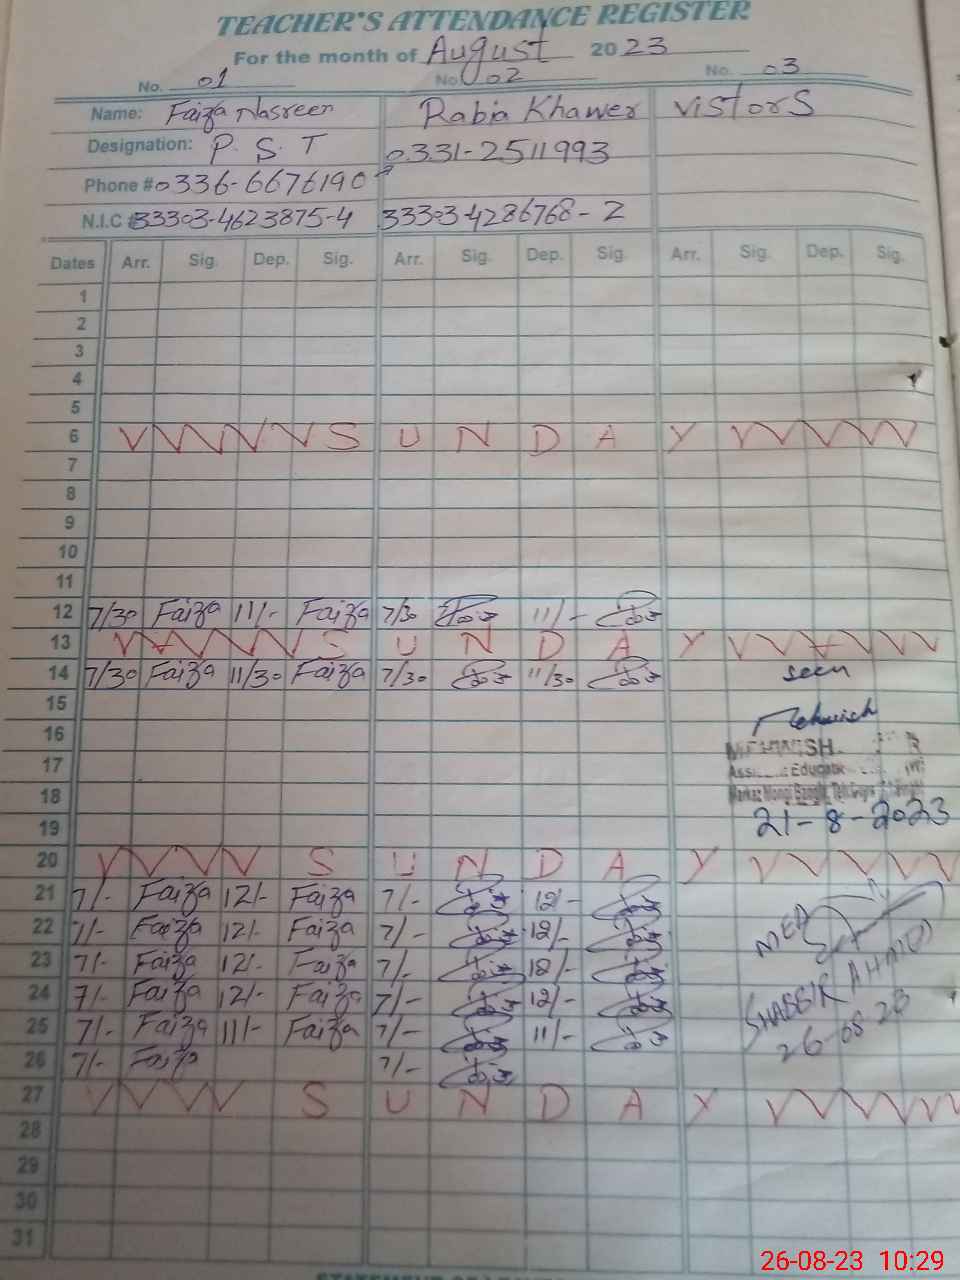 TEACHER'S ATTENDANCE REGISTER
For the month of August 2023
No. 01 No 02 No. 03
Name: Faiza Nasreen Rabia Khawer vistors
Designation: P. S. T 0331-2511993
Phone # 0336-6676190
N.I.C # 33303-4623875-4 33303-4286768-2
Dates Arr. Sig. Dep. Sig. Arr. Sig. Dep. Sig. Arr. Sig. Dep. Sig.
1
2
3
4
5
6 S U N D A Y
7
8
9
10
11
12 7/30 Faiza 11/- Faiza 7/30 11/-
13 S U N D A Y
14 7/30 Faiza 11/30 Faiza 7/30 11/30 seen
15
16 Mehwish
17 MEHWISH
18 Markaz Mongi Bangla
19 21-8-2023
20 S U N D A Y
21 7/- Faiza 12/- Faiza 7/- 12/-
22 7/- Faiza 12/- Faiza 7/- 12/-
23 7/- Faiza 12/- Faiza 7/- 12/-
24 7/- Faiza 12/- Faiza 7/- 12/-
25 7/- Faiza 11/- Faiza 7/- 11/-
26 7/- Faiza 7/-
MEA
SHABBIR AHMAD
26-08-23
27 S U N D A Y
28
29
30
31
26-08-23 10:29